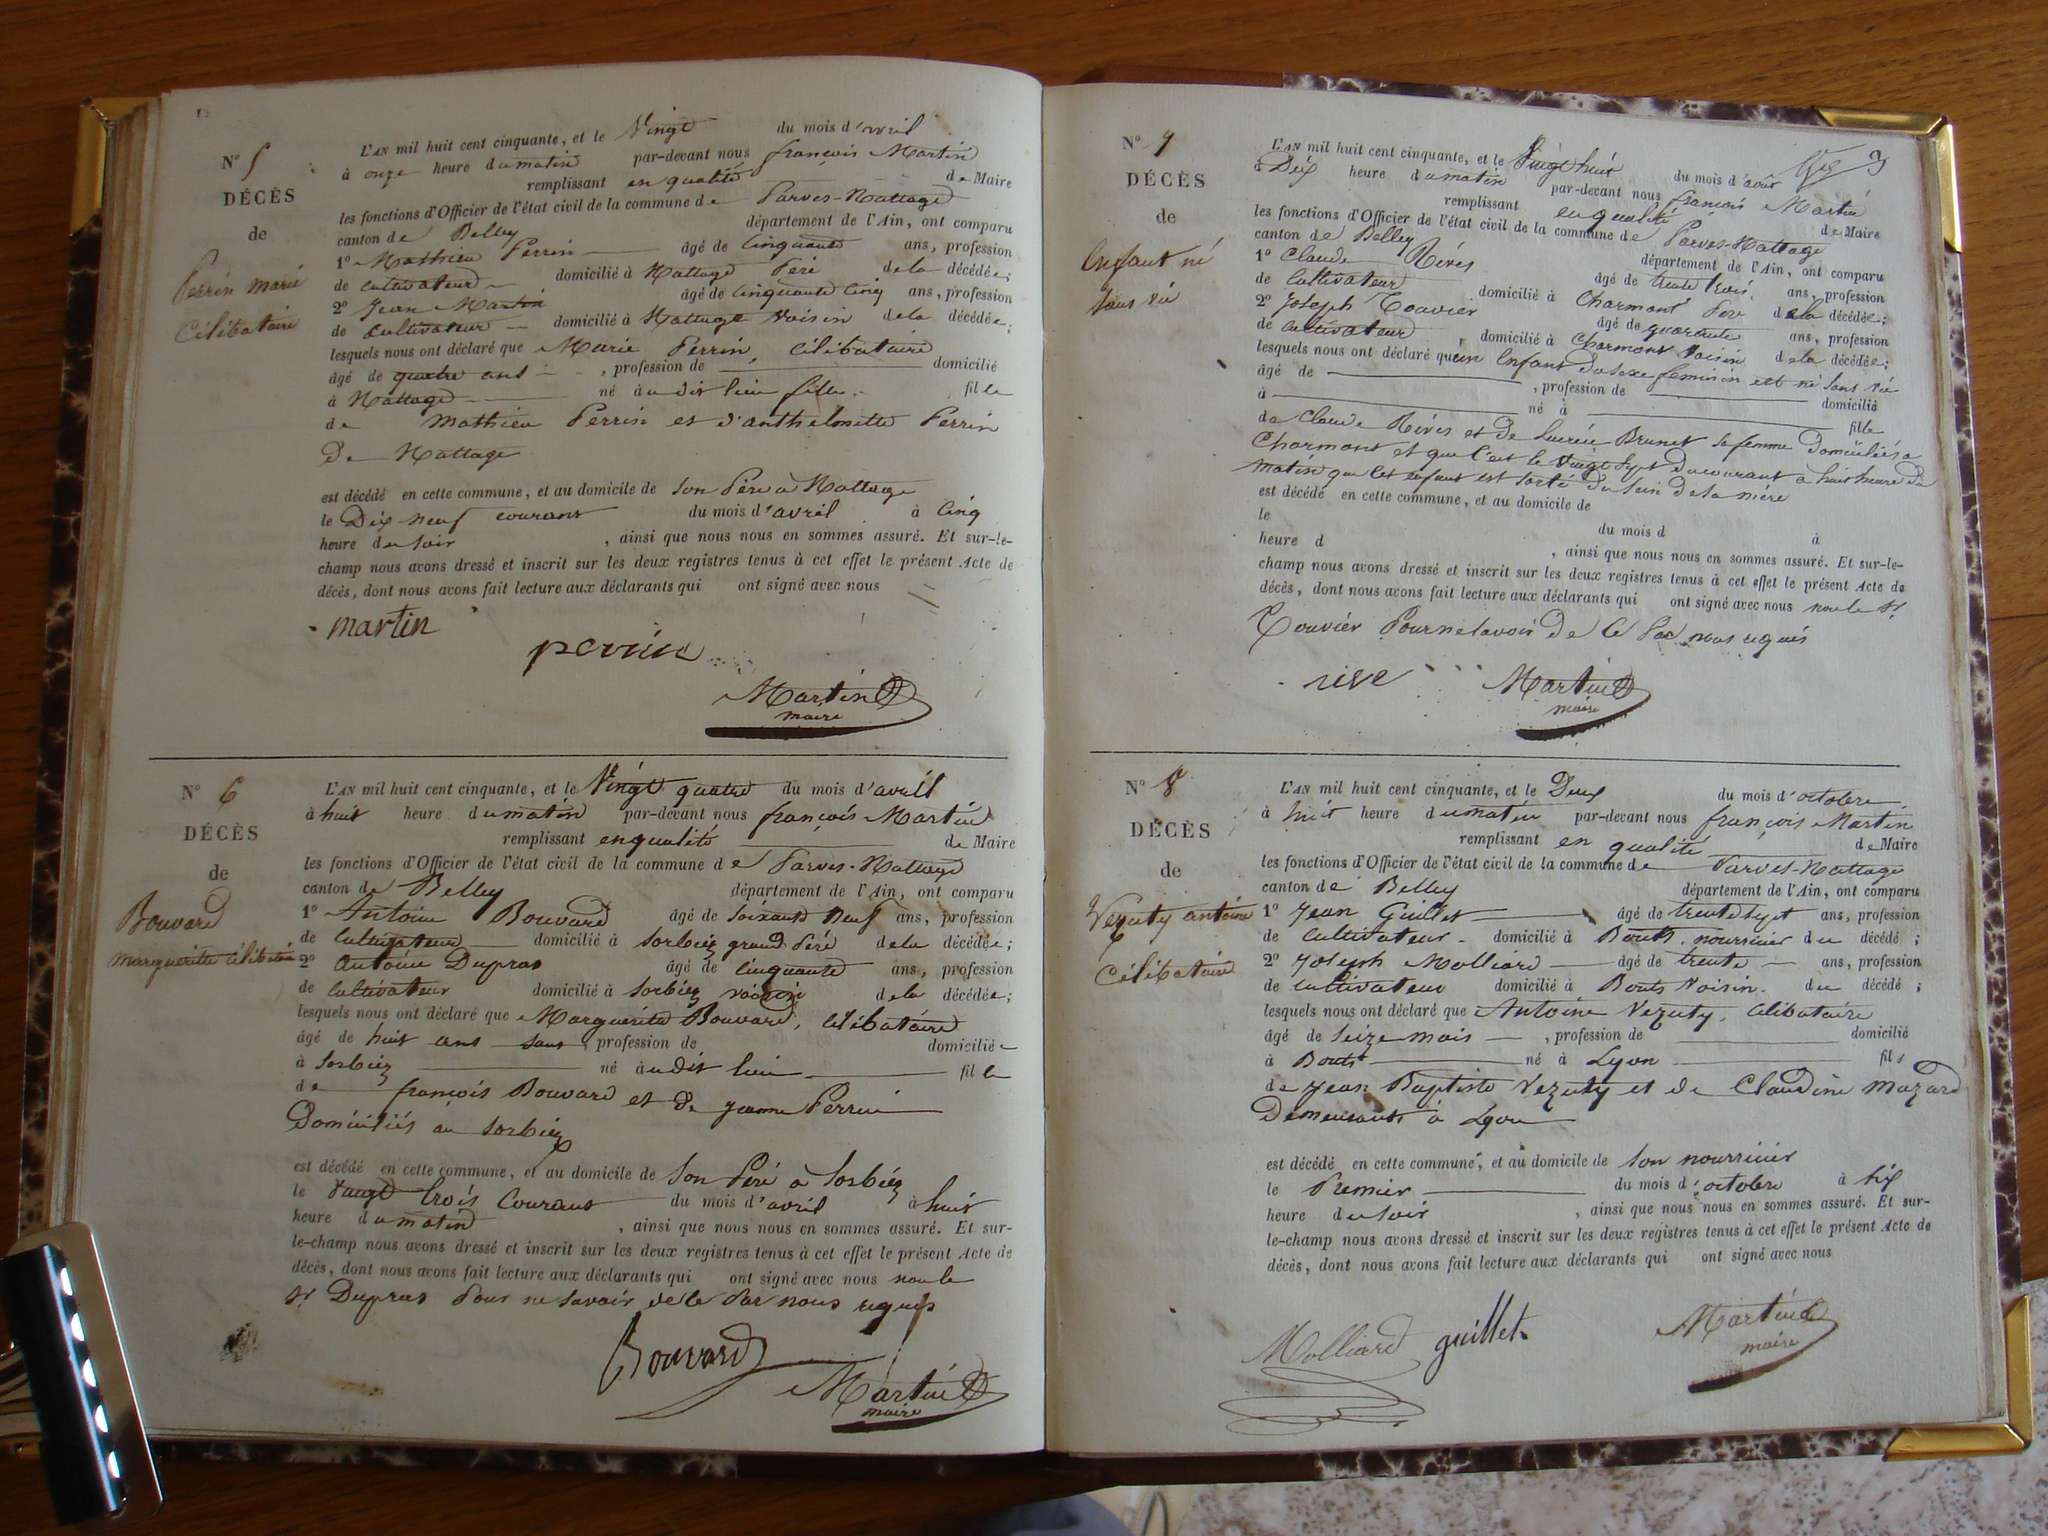 N° 5
DÉCÈS
de
Perrin marie
Célibataire
L'AN mil huit cent cinquante, et le Vingt du mois d'avril
à onze heure du matin par-devant nous françois Martin
remplissant en qualité de Maire
les fonctions d'Officier de l'état civil de la commune de Parves-Nattage
canton de Belley département de l'Ain, ont comparu
1° Mathieu Perrin âgé de Cinquante ans, profession
de cultivateur domicilié à Nattage Père de la décédée;
2° Jean Martin âgé de Cinquante Cinq ans, profession
de Cultivateur domicilié à Nattage Voisin de la décédée;
lesquels nous ont déclaré que Marie Perrin, Célibataire
âgé de quatre ans, profession de domicilié
à Nattage né à udit lieu fille. fille
de Mathieu Perrin et d'anthelmette Perrin
De Nattage
est décédé en cette commune, et au domicile de son Père à Nattage
le Dix neuf courant du mois d'avril à Cinq
heure du soir, ainsi que nous nous en sommes assuré. Et sur-le-
champ nous avons dressé et inscrit sur les deux registres tenus à cet effet le présent Acte de
décès, dont nous avons fait lecture aux déclarants qui ont signé avec nous
martin
perrin
Martin
maire
N° 6
DÉCÈS
de
Bouvard
marguerite célibataire
L'AN mil huit cent cinquante, et le Vingt quatre du mois d'avril
à huit heure du matin par-devant nous françois Martin
remplissant en qualité de Maire
les fonctions d'Officier de l'état civil de la commune de Parves-Nattage
canton de Belley département de l'Ain, ont comparu
1° Antoine Bouvard âgé de Soixante Neuf ans, profession
de Cultivateur domicilié à Sorbiez grand Père de la décédée;
2° Antoine Dupras âgé de Cinquante ans, profession
de Cultivateur domicilié à Sorbiez voisin de la décédée;
lesquels nous ont déclaré que Marguerite Bouvard, Célibataire
âgé de huit ans sans, profession de domicilié
à Sorbiez né à udit lieu fille
de françois Bouvard et de Jeanne Perrin
Domiciliés au Sorbiez
est décédé en cette commune, et au domicile de Son Père à Sorbiez
le Vingt trois Courant du mois d'avril à huit
heure du matin, ainsi que nous nous en sommes assuré. Et sur-
le-champ nous avons dressé et inscrit sur les deux registres tenus à cet effet le présent Acte de
décès, dont nous avons fait lecture aux déclarants qui ont signé avec nous non le
Sr Dupras Pour ne savoir de le Par nous requis
Bouvard
Martin
maire
N° 7
DÉCÈS
de
Enfant né
sans vie
3
L'AN mil huit cent cinquante, et le Vingt huit du mois d'août
à Dix heure du matin par-devant nous françois Martin
remplissant en qualité de Maire
les fonctions d'Officier de l'état civil de la commune de Parves-Nattage
canton de Belley département de l'Ain, ont comparu
1° Claude Rives âgé de trente trois ans, profession
de Cultivateur domicilié à Charmont Père de la décédée;
2° Joseph Touvier âgé de quarante ans, profession
de Cultivateur, domicilié à Charmont Voisin de la décédée;
lesquels nous ont déclaré qu'un Enfant du sexe feminin est né sans vie
âgé de, profession de domicilié
à né à fille
de Claude Rives et de Lucrèce Brunet sa femme Domiciliés à
Charmont et que c'est le Vingt Sept du courant à huit heure du
matin que cet enfant est sorti du sein de la mère
est décédé en cette commune, et au domicile de
le du mois d à
heure d, ainsi que nous nous en sommes assuré. Et sur-le-
champ nous avons dressé et inscrit sur les deux registres tenus à cet effet le présent Acte de
décès, dont nous avons fait lecture aux déclarants qui ont signé avec nous non le Sr
Touvier Pour ne savoir De Ce Par nous requis
rive
Martin
maire
N° 8
DÉCÈS
de
Vezuty antoine
Célibataire
L'AN mil huit cent cinquante, et le Deux du mois d'octobre
à huit heure du matin par-devant nous françois Martin
remplissant en qualité de Maire
les fonctions d'Officier de l'état civil de la commune de Parves-Nattage
canton de Belley département de l'Ain, ont comparu
1° Jean Guillet âgé de trente sept ans, profession
de Cultivateur domicilié à Bouts nourricier du décédé;
2° Joseph Molliard âgé de trente ans, profession
de Cultivateur domicilié à Bouts Voisin du décédé;
lesquels nous ont déclaré que Antoine Vezuty, Célibataire
âgé de Seize mois, profession de domicilié
à Bouts né à Lyon fils
de Jean Baptiste Vezuty et de Claudine Mazard
Demeurants à Lyon
est décédé en cette commune, et au domicile de Son nourricier
le Premier du mois d'octobre à Six
heure du soir, ainsi que nous nous en sommes assuré. Et sur-
le-champ nous avons dressé et inscrit sur les deux registres tenus à cet effet le présent Acte de
décès, dont nous avons fait lecture aux déclarants qui ont signé avec nous
Molliard guillet
Martin
maire